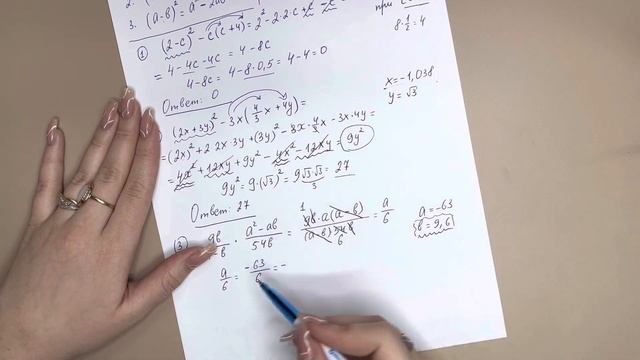 3. (a-b)² = a² - 2ab
при
① (2-c)² - c(c+4) = 2² - 2·2·c + c² - c²
8·½=4
= 4 - 4c - 4c = 4 - 8c
4 - 8c = 4 - 8·0,5 = 4 - 4 = 0
Ответ: 0
x = -1,038
y = √3
(2x+3y)² - 3x(4/3 x + 4y) =
= (2x)² + 2·2x·3y + (3y)² - 3x·4/3 x - 3x·4y =
= 4x² + 12xy + 9y² - 4x² - 12xy = 9y²
9y² = 9·(√3)² = 9√3√3 = 27
3
Ответ: 27
③ 9b/-b · a²-ab/54b = 9b·a(a-b)/(a-b)54b = a/6
1
6
a = -63
b = 9,6
a/6 = -63/6 = -